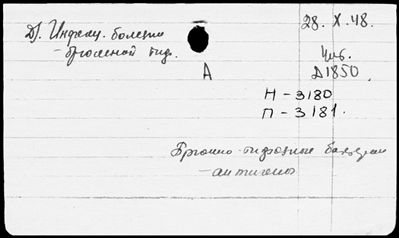 28. X. 48.
Д). Инфекц. болезни
- брюшной тиф.
Инв.
A
Д1850.
Н - 3180
П - 3181.
Брюшно-тифозные бактерии
- антигены